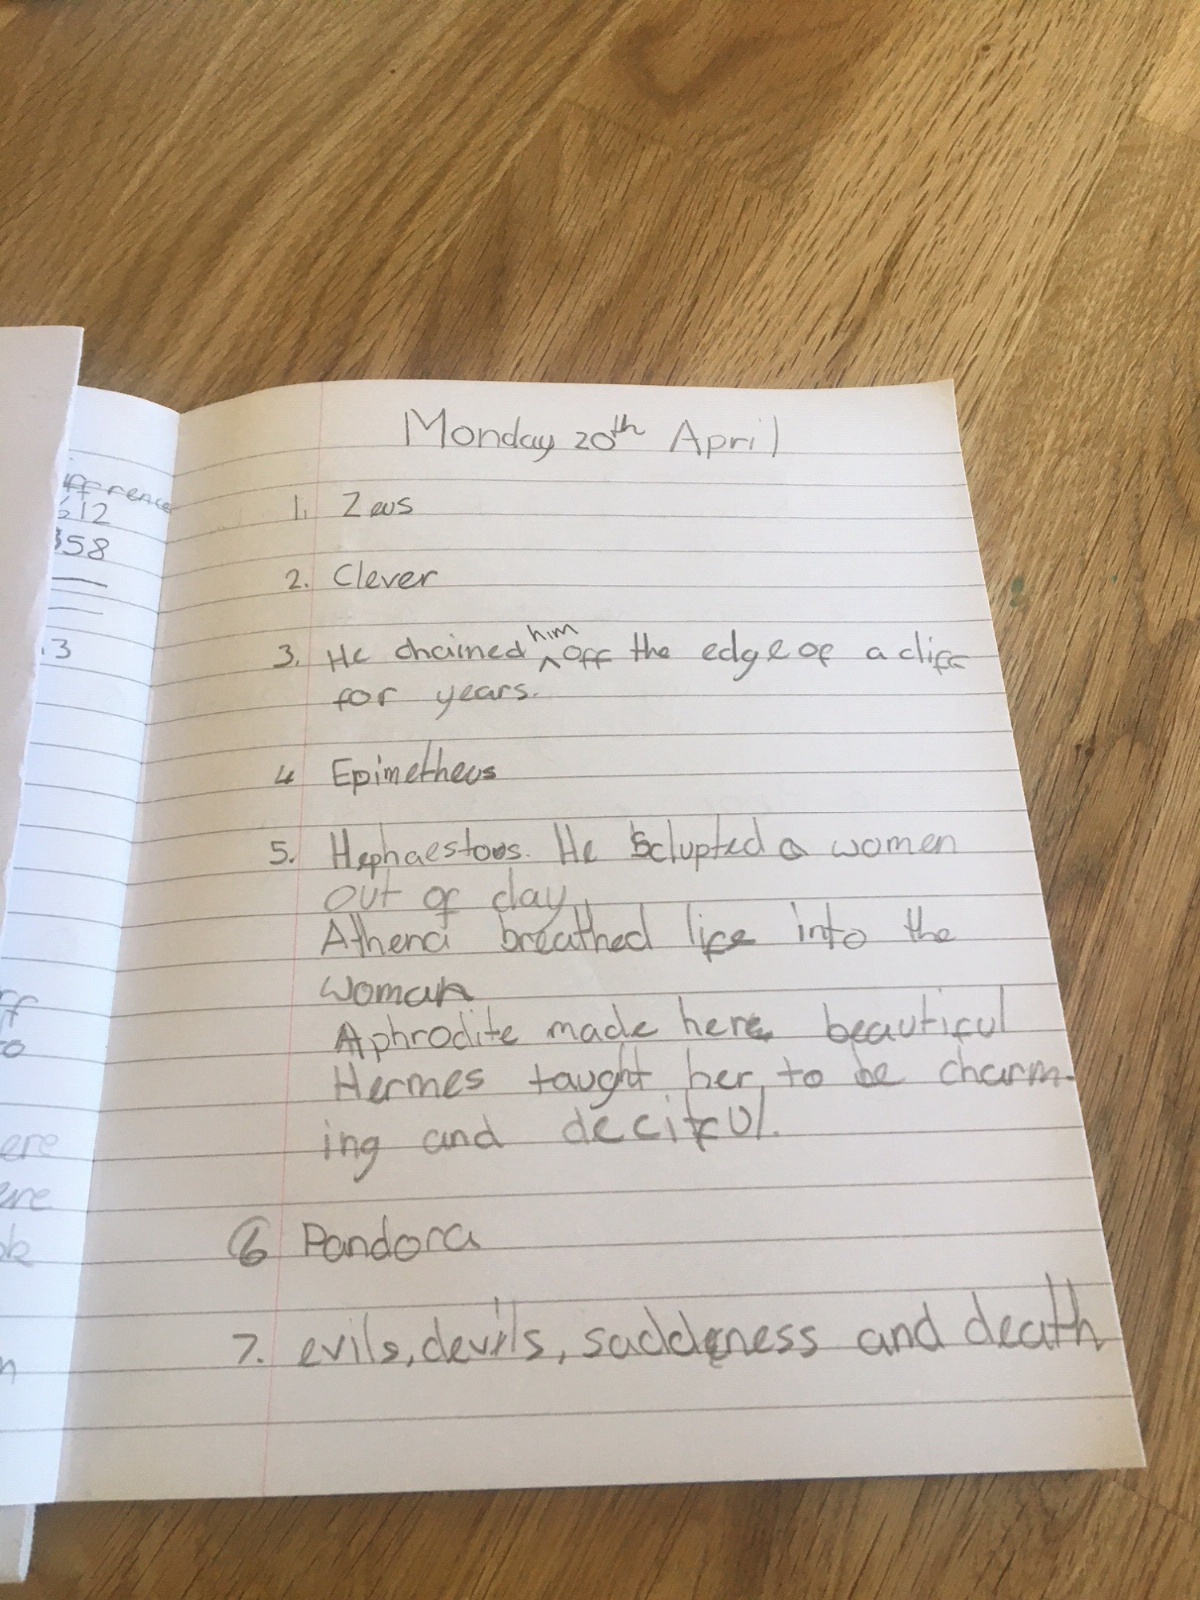 Monday 20th April
1. Zeus
2. Clever
3. He chained him off the edge of a cliff
for years.
4 Epimetheus
5. Hephaestous. He sclupted a women
out of clay
Athena breathed life into the
woman
Aphrodite made here beautiful
Hermes taught her to be charm-
ing and decitful.
6 Pandora
7. evils, devils, saddeness and death
ifference
612
358
.3
ff
to
ere
ere